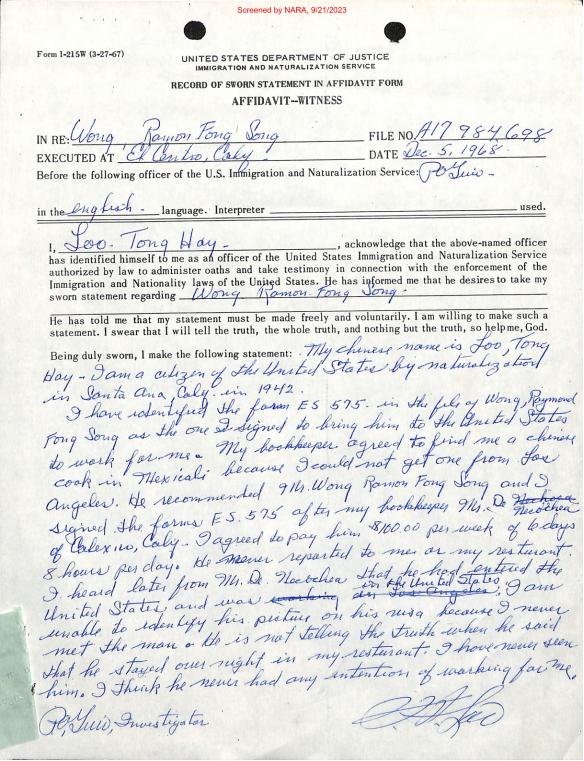 Screened by NARA, 9/21/2023
Form I-215W (3-27-67)
UNITED STATES DEPARTMENT OF JUSTICE
IMMIGRATION AND NATURALIZATION SERVICE
RECORD OF SWORN STATEMENT IN AFFIDAVIT FORM
AFFIDAVIT--WITNESS
IN RE: Wong, Ramon Fong Song FILE NO. A17 984 698
EXECUTED AT El Centro, Caly. DATE Dec. 5, 1968.
Before the following officer of the U.S. Immigration and Naturalization Service:
in the english language. Interpreter used.
I, Loo - Tong Hay - , acknowledge that the above-named officer
has identified himself to me as an officer of the United States Immigration and Naturalization Service
authorized by law to administer oaths and take testimony in connection with the enforcement of the
Immigration and Nationality laws of the United States. He has informed me that he desires to take my
sworn statement regarding Wong Ramon Fong Song.
He has told me that my statement must be made freely and voluntarily. I am willing to make such a
statement. I swear that I will tell the truth, the whole truth, and nothing but the truth, so help me, God.
Being duly sworn, I make the following statement: My chinese name is Loo, Tong
Hay - I am a citizen of the United States by naturalization
in Santa Ana, Caly. in 1942.
I have identified the form ES 575. in the file of Wong, Raymond
Fong Song as the one I signed to bring him to the United States
to work for me. My bookkeeper agreed to find me a chinese
cook in Mexicali because I could not get one from Los
Angeles. He recommended Mr. Wong Ramon Fong Song and I
signed the forms ES. 575 after my bookkeeper Mr. D. Necochea
of Calexico, Caly. I agreed to pay him $100.00 per week of 6 days
8 hours per day. He never reported to me or my resturant.
I heard later from Mr. D. Necochea that he had entered the
United States and was working in the United States in Los Angeles, I am
unable to identify his picture on his visa because I never
met the man. He is not telling the truth when he said
that he stayed over night in my resturant. I have never seen
him. I think he never had any intention of working for me.
Investigator